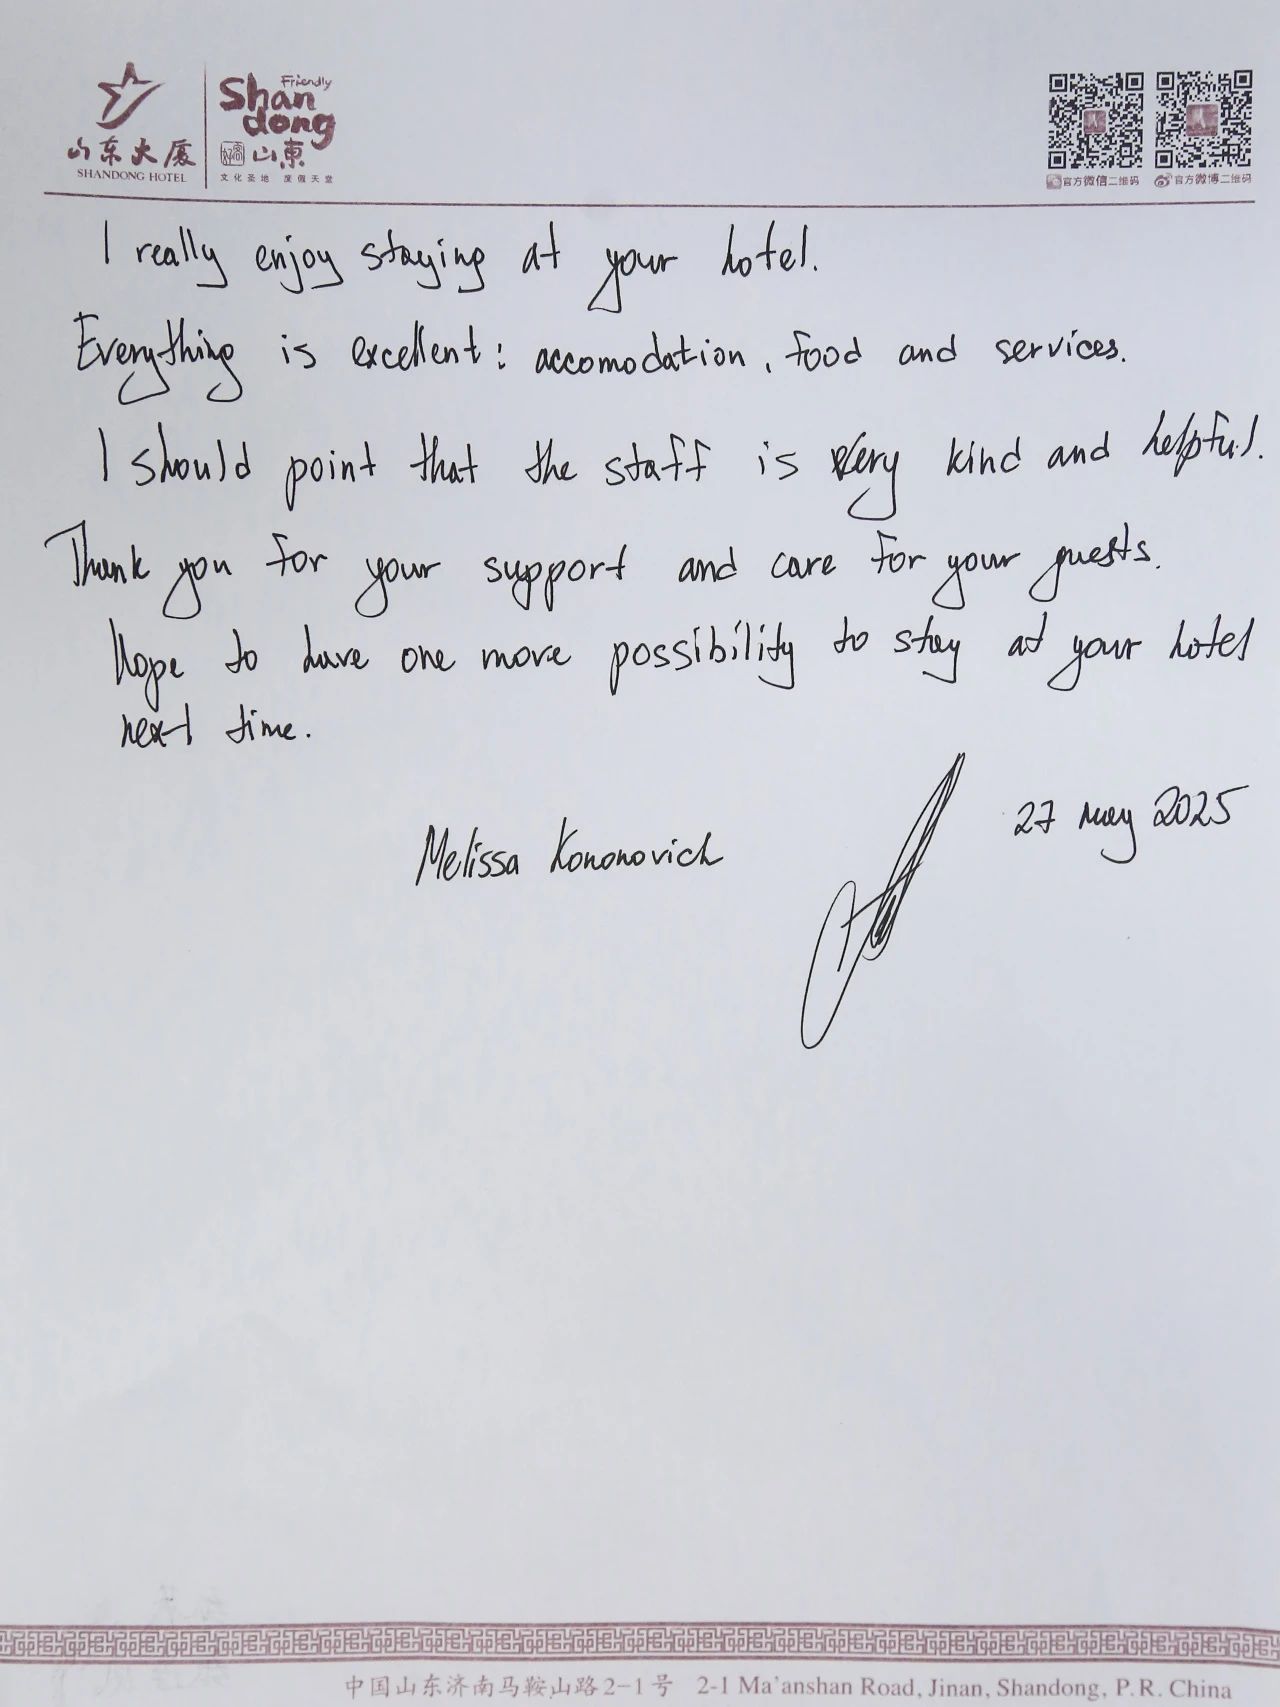 山东大厦
SHANDONG HOTEL
Friendly
Shan
dong
好客山東
文化圣地 度假天堂
官方微信二维码 官方微博二维码
I really enjoy staying at your hotel.
Everything is excellent: accomodation, food and services.
I should point that the staff is very kind and helpful.
Thank you for your support and care for your guests.
Hope to have one more possibility to stay at your hotel
next time.
27 may 2025
Melissa Kononovich
中国山东济南马鞍山路2-1号 2-1 Ma'anshan Road, Jinan, Shandong, P.R. China